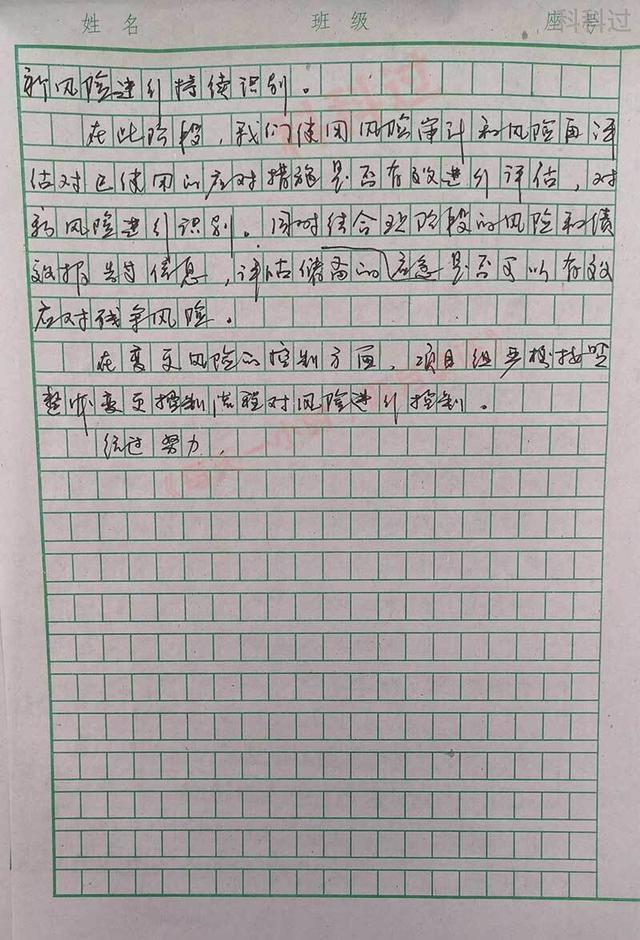 姓名 班级 座号
科科过
新风险进行持续识别。
在此阶段，我们使用风险审计和风险再评
估对已使用的应对措施是否有效进行评估，对
新风险进行识别。同时结合现阶段的风险和绩
效报告等信息，评估储备的应急是否可以有效
应对残余风险。
在变更风险的控制方面，项目组严格按照
整体变更控制流程对风险进行控制。
经过努力，